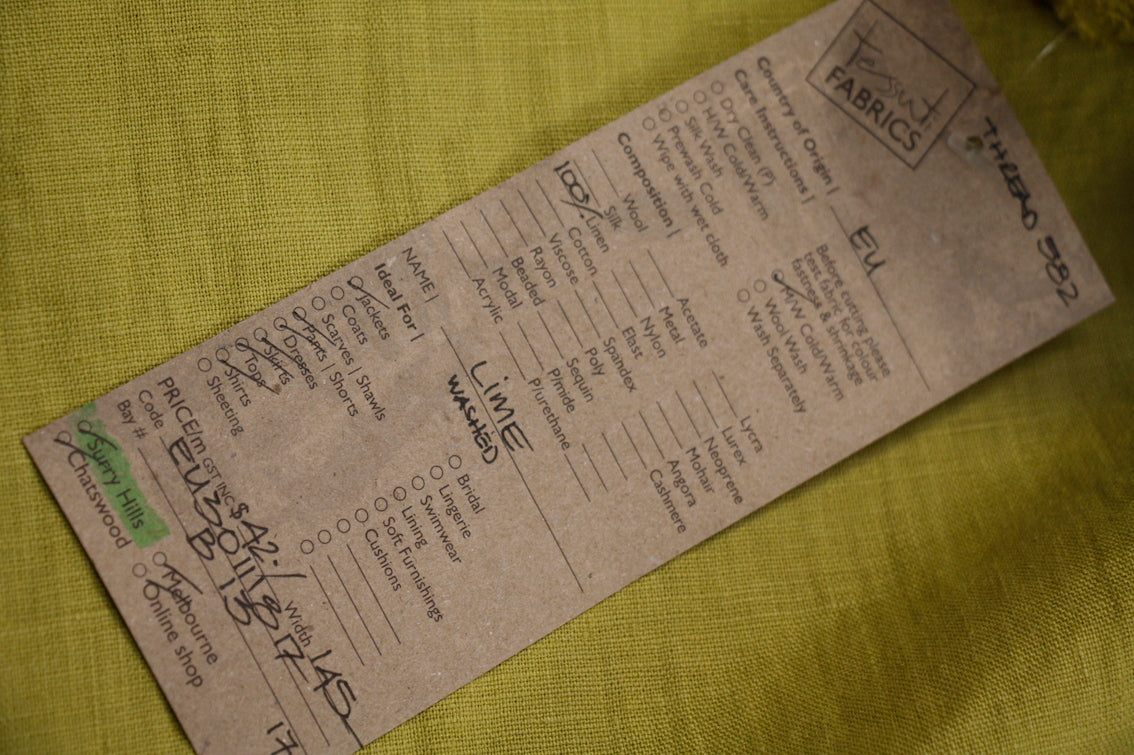 THREAD 382
Tessuti
FABRICS
Country of Origin | EU
Care Instructions |
Dry Clean (P)
H/W Cold/Warm
Silk Wash
Prewash Cold
Wipe with wet cloth
Before cutting please
test fabric for colour
fastness & shrinkage
M/W Cold/Warm
Wool Wash
Wash Separately
Composition |
Wool
Silk
100% Linen
Cotton
Viscose
Rayon
Beaded
Modal
Acrylic
Acetate
Metal
Nylon
Elast
Spandex
Poly
Sequin
P/mide
P/urethane
Lycra
Lurex
Neoprene
Mohair
Angora
Cashmere
NAME | LIME
WASHED
Ideal For |
Jackets
Coats
Scarves | Shawls
Pants | Shorts
Dresses
Skirts
Tops
Shirts
Sheeting
Bridal
Lingerie
Swimwear
Lining
Soft Furnishings
Cushions
PRICE/m GST INC $42.- Width 145
Code EU30111817
Bay # B 13
17
Surry Hills
Chatswood
Melbourne
Online shop